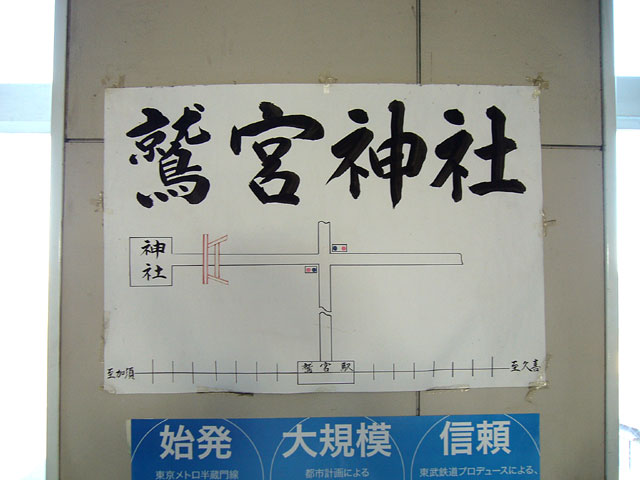 鷲宮神社
神社
鷲宮駅
至加須
至久喜
始発
東京メトロ半蔵門線
大規模
都市計画による
信頼
東武鉄道プロデュースによる、